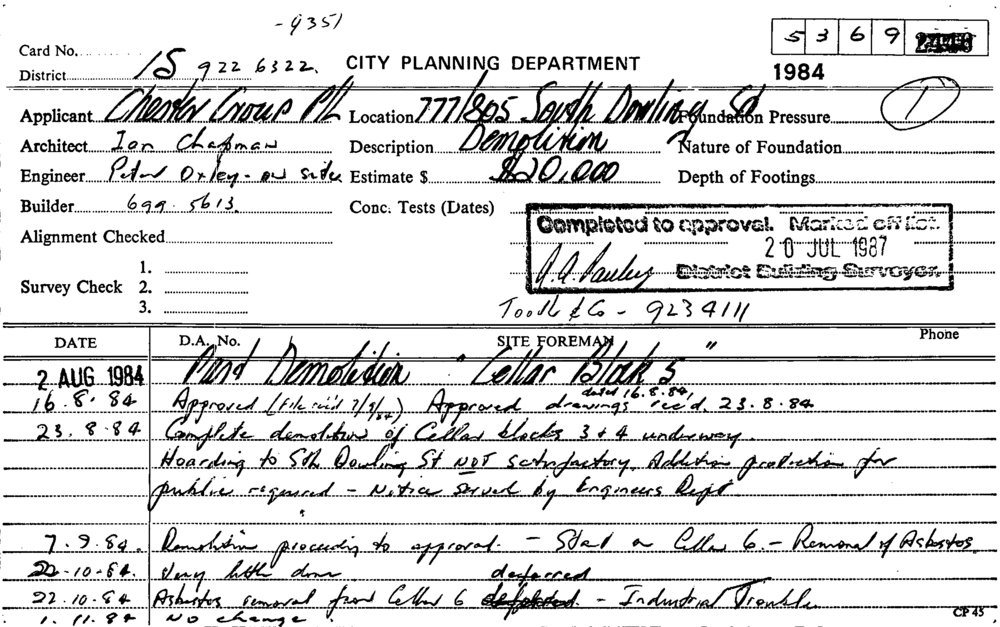 - 9351
5 3 6 9
Card No.
District 15 922 6322. CITY PLANNING DEPARTMENT 1984
1
Applicant Chester Group P/L Location 777/805 South Dowling St Foundation Pressure
Architect Ian Chapman Description Demolition Nature of Foundation
Engineer Peter Oxley - on site Estimate $ $20,000 Depth of Footings
Builder 699 5613. Conc. Tests (Dates)
Completed to approval. Marked off list.
20 JUL 1987
District Building Surveyor.
Alignment Checked
1.
Survey Check 2.
3.
Tooth & Co - 923 4111
DATE D.A. No. SITE FOREMAN Phone
2 AUG 1984 Part Demolition "Cellar Block 5"
dated 16.8.84,
16.8.84 Approved (File rec'd 7/9/84) Approved drawings rec'd. 23.8.84
23.8.84 Complete demolition of Cellar blocks 3 + 4 underway.
Hoarding to Sth Dowling St NOT satisfactory. Addition protection for
public required - Notice served by Engineers Dept
7.9.84. Demolition proceeding to approval. - Start on Cellar 6. - Removal of Asbestos.
22-10-84. Very little done
deferred
22.10.84 Asbestos removal from Cellar 6 - Industrial Trouble
1.11.84 No change.
CP 45